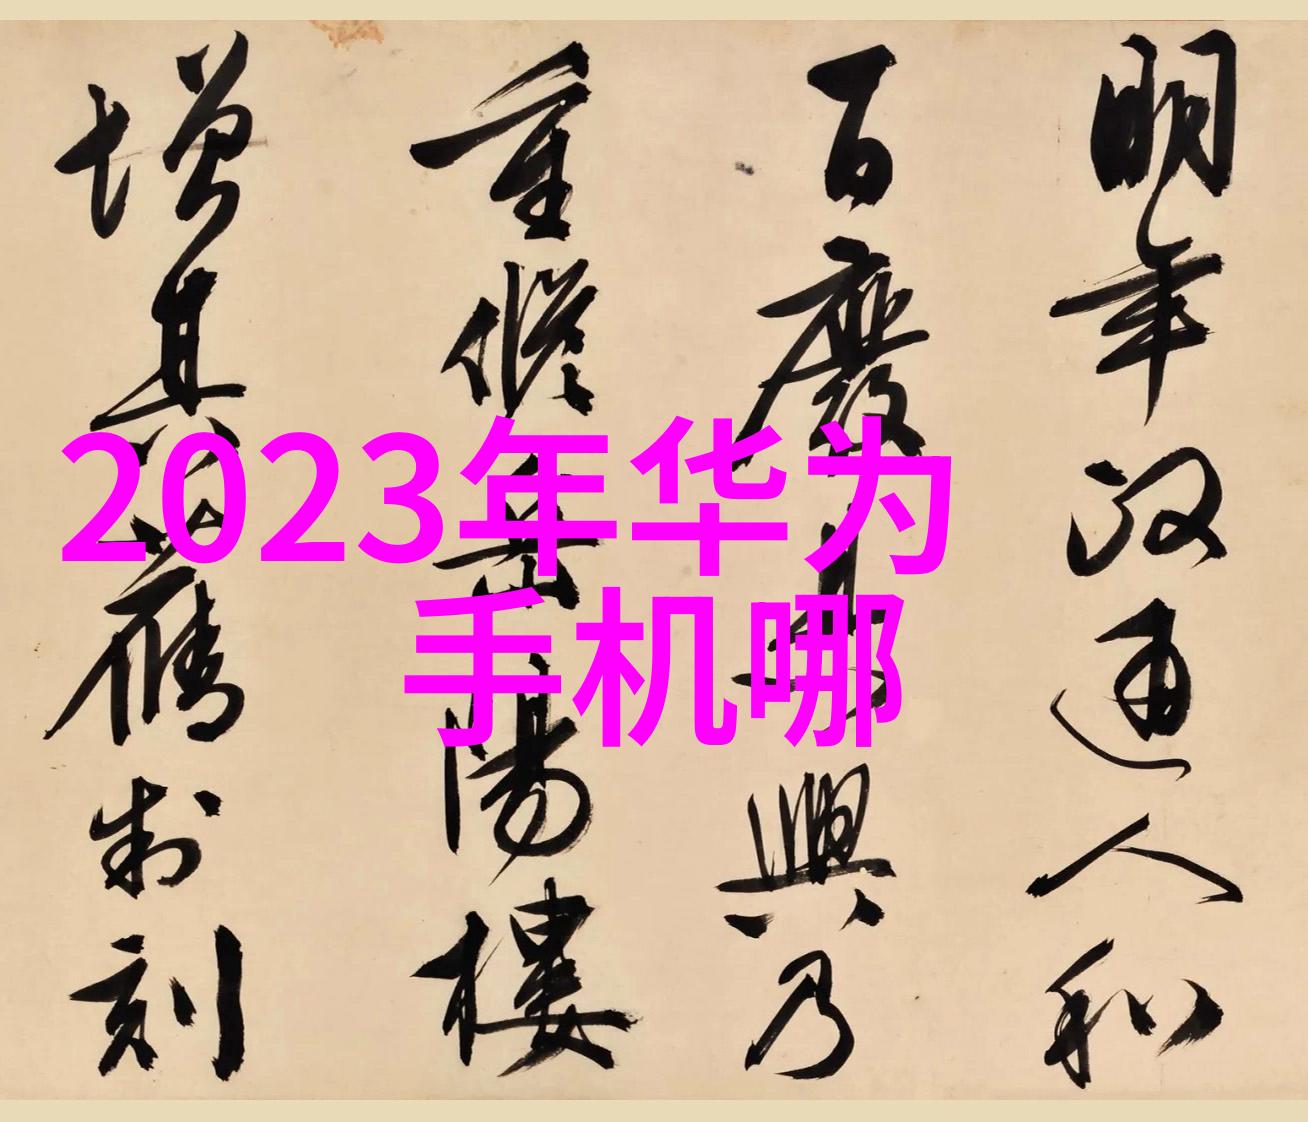 明年政通人和
百廢具興乃
重脩岳陽樓
增其舊制刻
2023年华为
手机哪